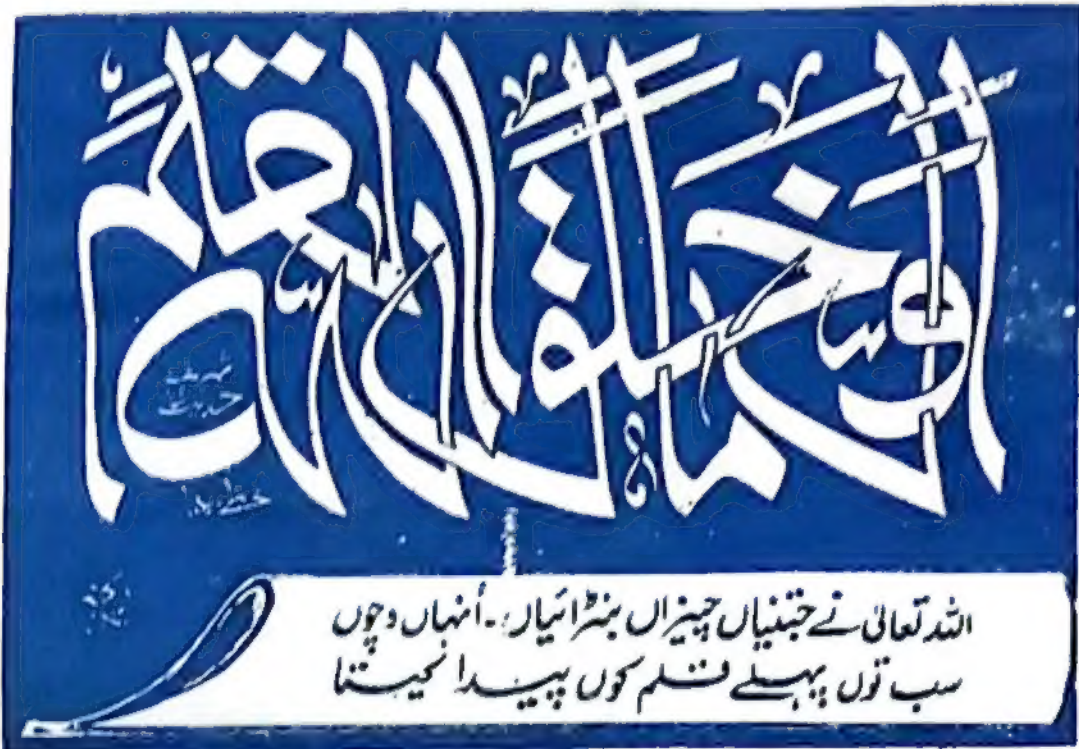 اول ما خلق الله القلم
حدیث شریف
الله تعالیٰ نے جتنیاں چیزاں بنڑائیاں، اُنہاں وچوں
سب توں پہلے قلم کوں پیدا کیتا